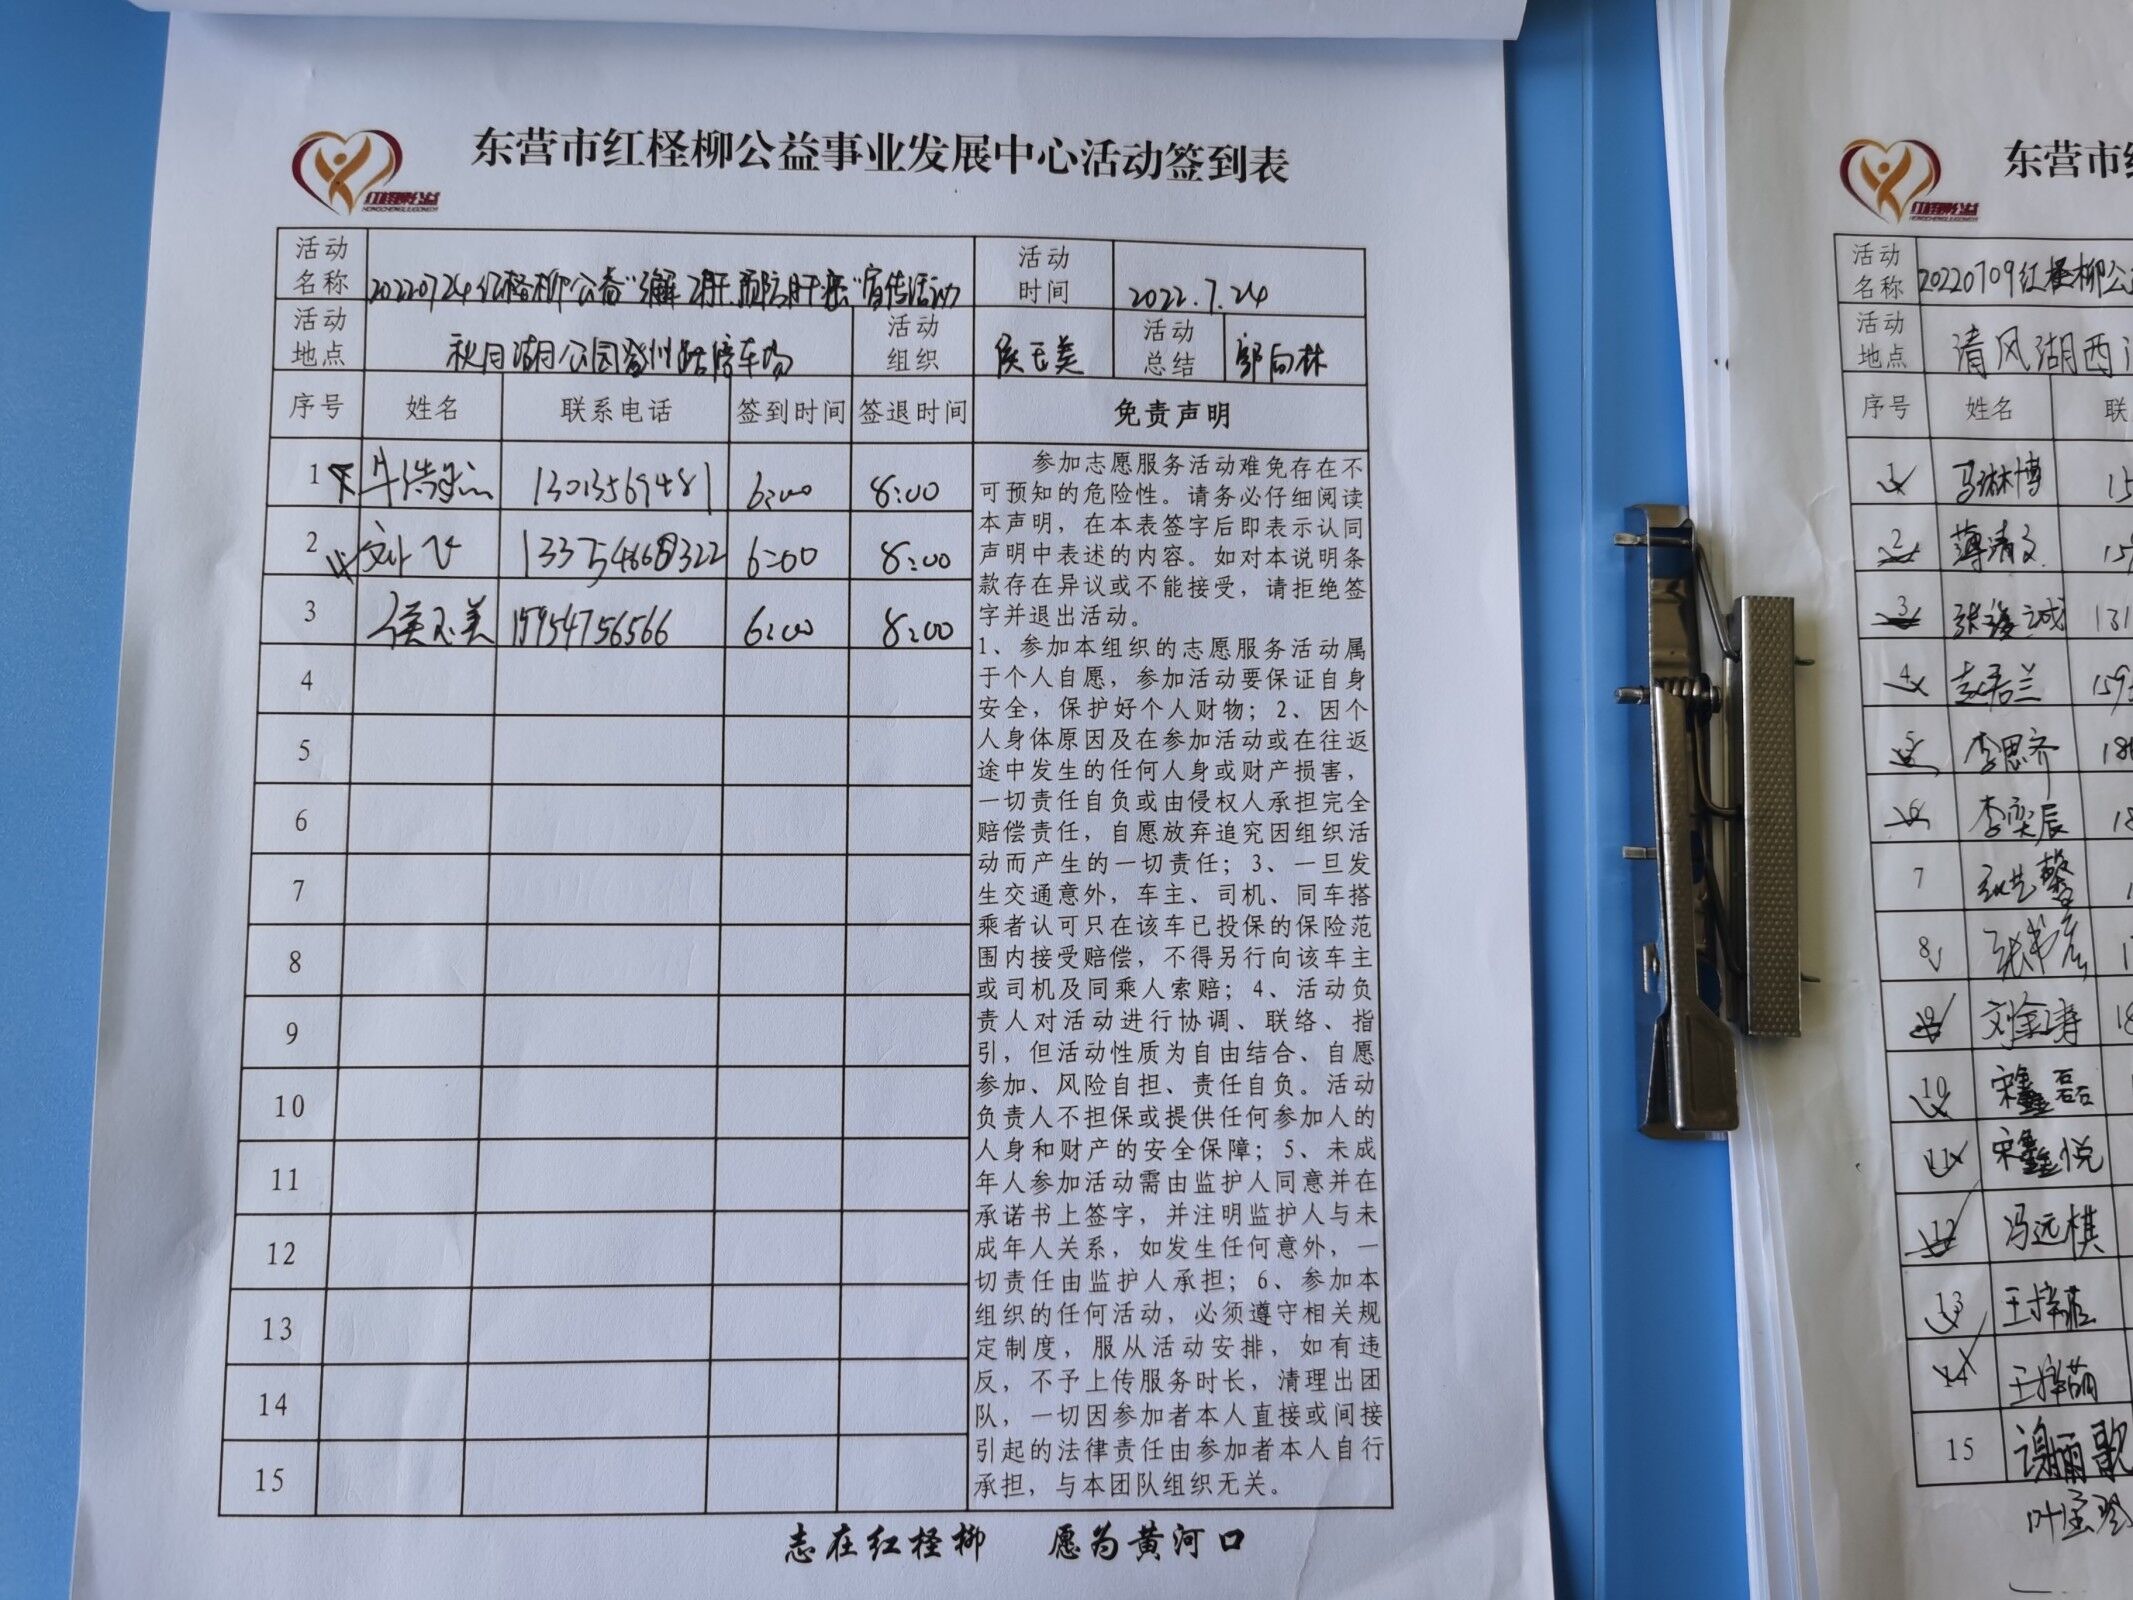 东营市红柽柳公益事业发展中心活动签到表
红柽柳公益
HONGCHENGLIUGONGYI
活动名称 20220724红柽柳公益“ 肝 预防肝癌”宣传活动 活动时间 2022.7.24
活动地点 秋月湖公园登州路停车场 活动组织 侯玉美 活动总结 郭向林
序号 姓名 联系电话 签到时间 签退时间 免责声明
1 13013569481 6:00 8:00
2 6:00 8:00
3 侯玉美 15954756566 6:00 8:00
4
5
6
7
8
9
10
11
12
13
14
15
参加志愿服务活动难免存在不
可预知的危险性。请务必仔细阅读
本声明，在本表签字后即表示认同
声明中表述的内容。如对本说明条
款存在异议或不能接受，请拒绝签
字并退出活动。
1、参加本组织的志愿服务活动属
于个人自愿，参加活动要保证自身
安全，保护好个人财物；2、因个
人身体原因及在参加活动或在往返
途中发生的任何人身或财产损害，
一切责任自负或由侵权人承担完全
赔偿责任，自愿放弃追究因组织活
动而产生的一切责任；3、一旦发
生交通意外，车主、司机、同车搭
乘者认可只在该车已投保的保险范
围内接受赔偿，不得另行向该车主
或司机及同乘人索赔；4、活动负
责人对活动进行协调、联络、指
引，但活动性质为自由结合、自愿
参加、风险自担、责任自负。活动
负责人不担保或提供任何参加人的
人身和财产的安全保障；5、未成
年人参加活动需由监护人同意并在
承诺书上签字，并注明监护人与未
成年人关系，如发生任何意外，一
切责任由监护人承担；6、参加本
组织的任何活动，必须遵守相关规
定制度，服从活动安排，如有违
反，不予上传服务时长，清理出团
队，一切因参加者本人直接或间接
引起的法律责任由参加者本人自行
承担，与本团队组织无关。
志在红柽柳 愿为黄河口
东营市
红柽柳公益
活动名称 20220709红柽柳公
活动地点 清风湖西
序号 姓名 联
1 马琳博 15
2 薄清文 15
3 131
4 赵君兰 159
5 李思齐 18
6 李奕辰 18
7 张艺馨
8
9 刘金涛 18
10 宋鑫磊
11 宋鑫悦
12 冯远棋
13
14
15 谢丽歌